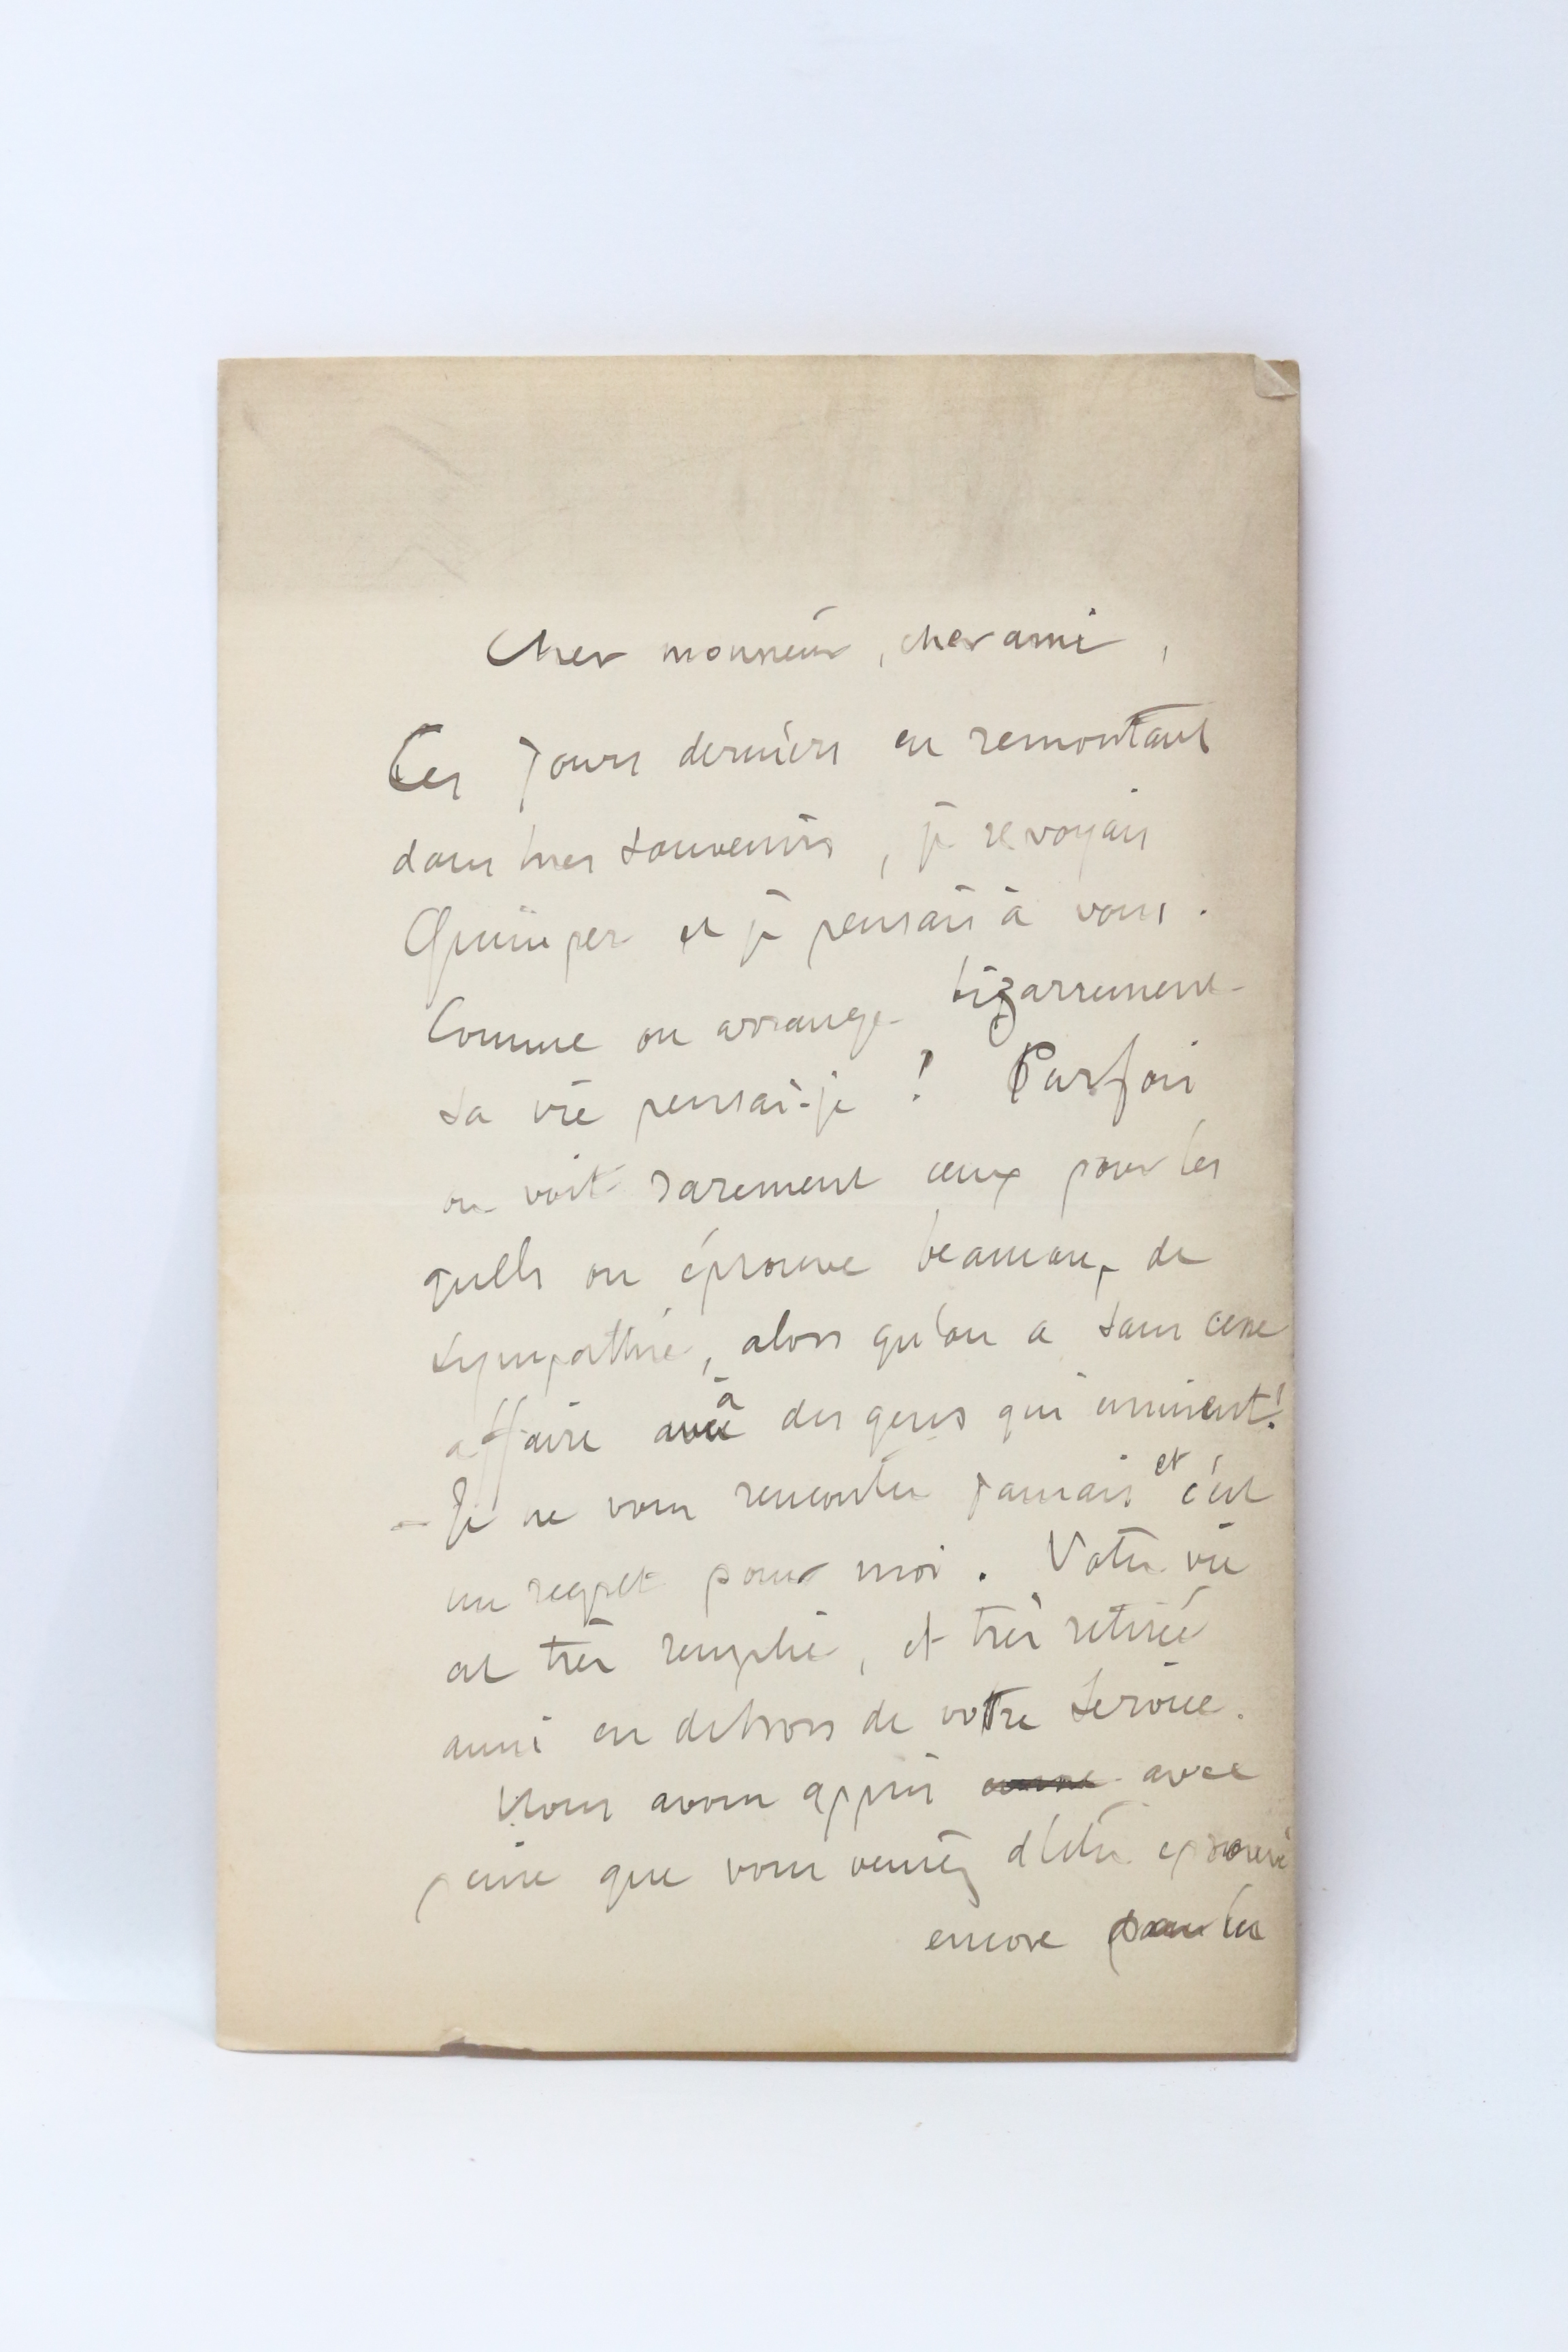 Cher monsieur, cher ami,
Ces jours derniers en remontant
dans mes souvenirs, je revoyais
Quimper et je pensais à vous.
Comme on arrange bizarrement
sa vie pensai-je ! Parfois
on voit rarement ceux pour les
quels on éprouve beaucoup de
sympathie, alors qu'on a sans cesse
affaire à des gens qui ennuient !
- Je ne vous rencontre jamais et c'est
un regret pour moi. Votre vie
est très remplie, et très retirée
aussi en dehors de votre service.
Nous avons appris avec
peine que vous veniez d'être éprouvé
encore les